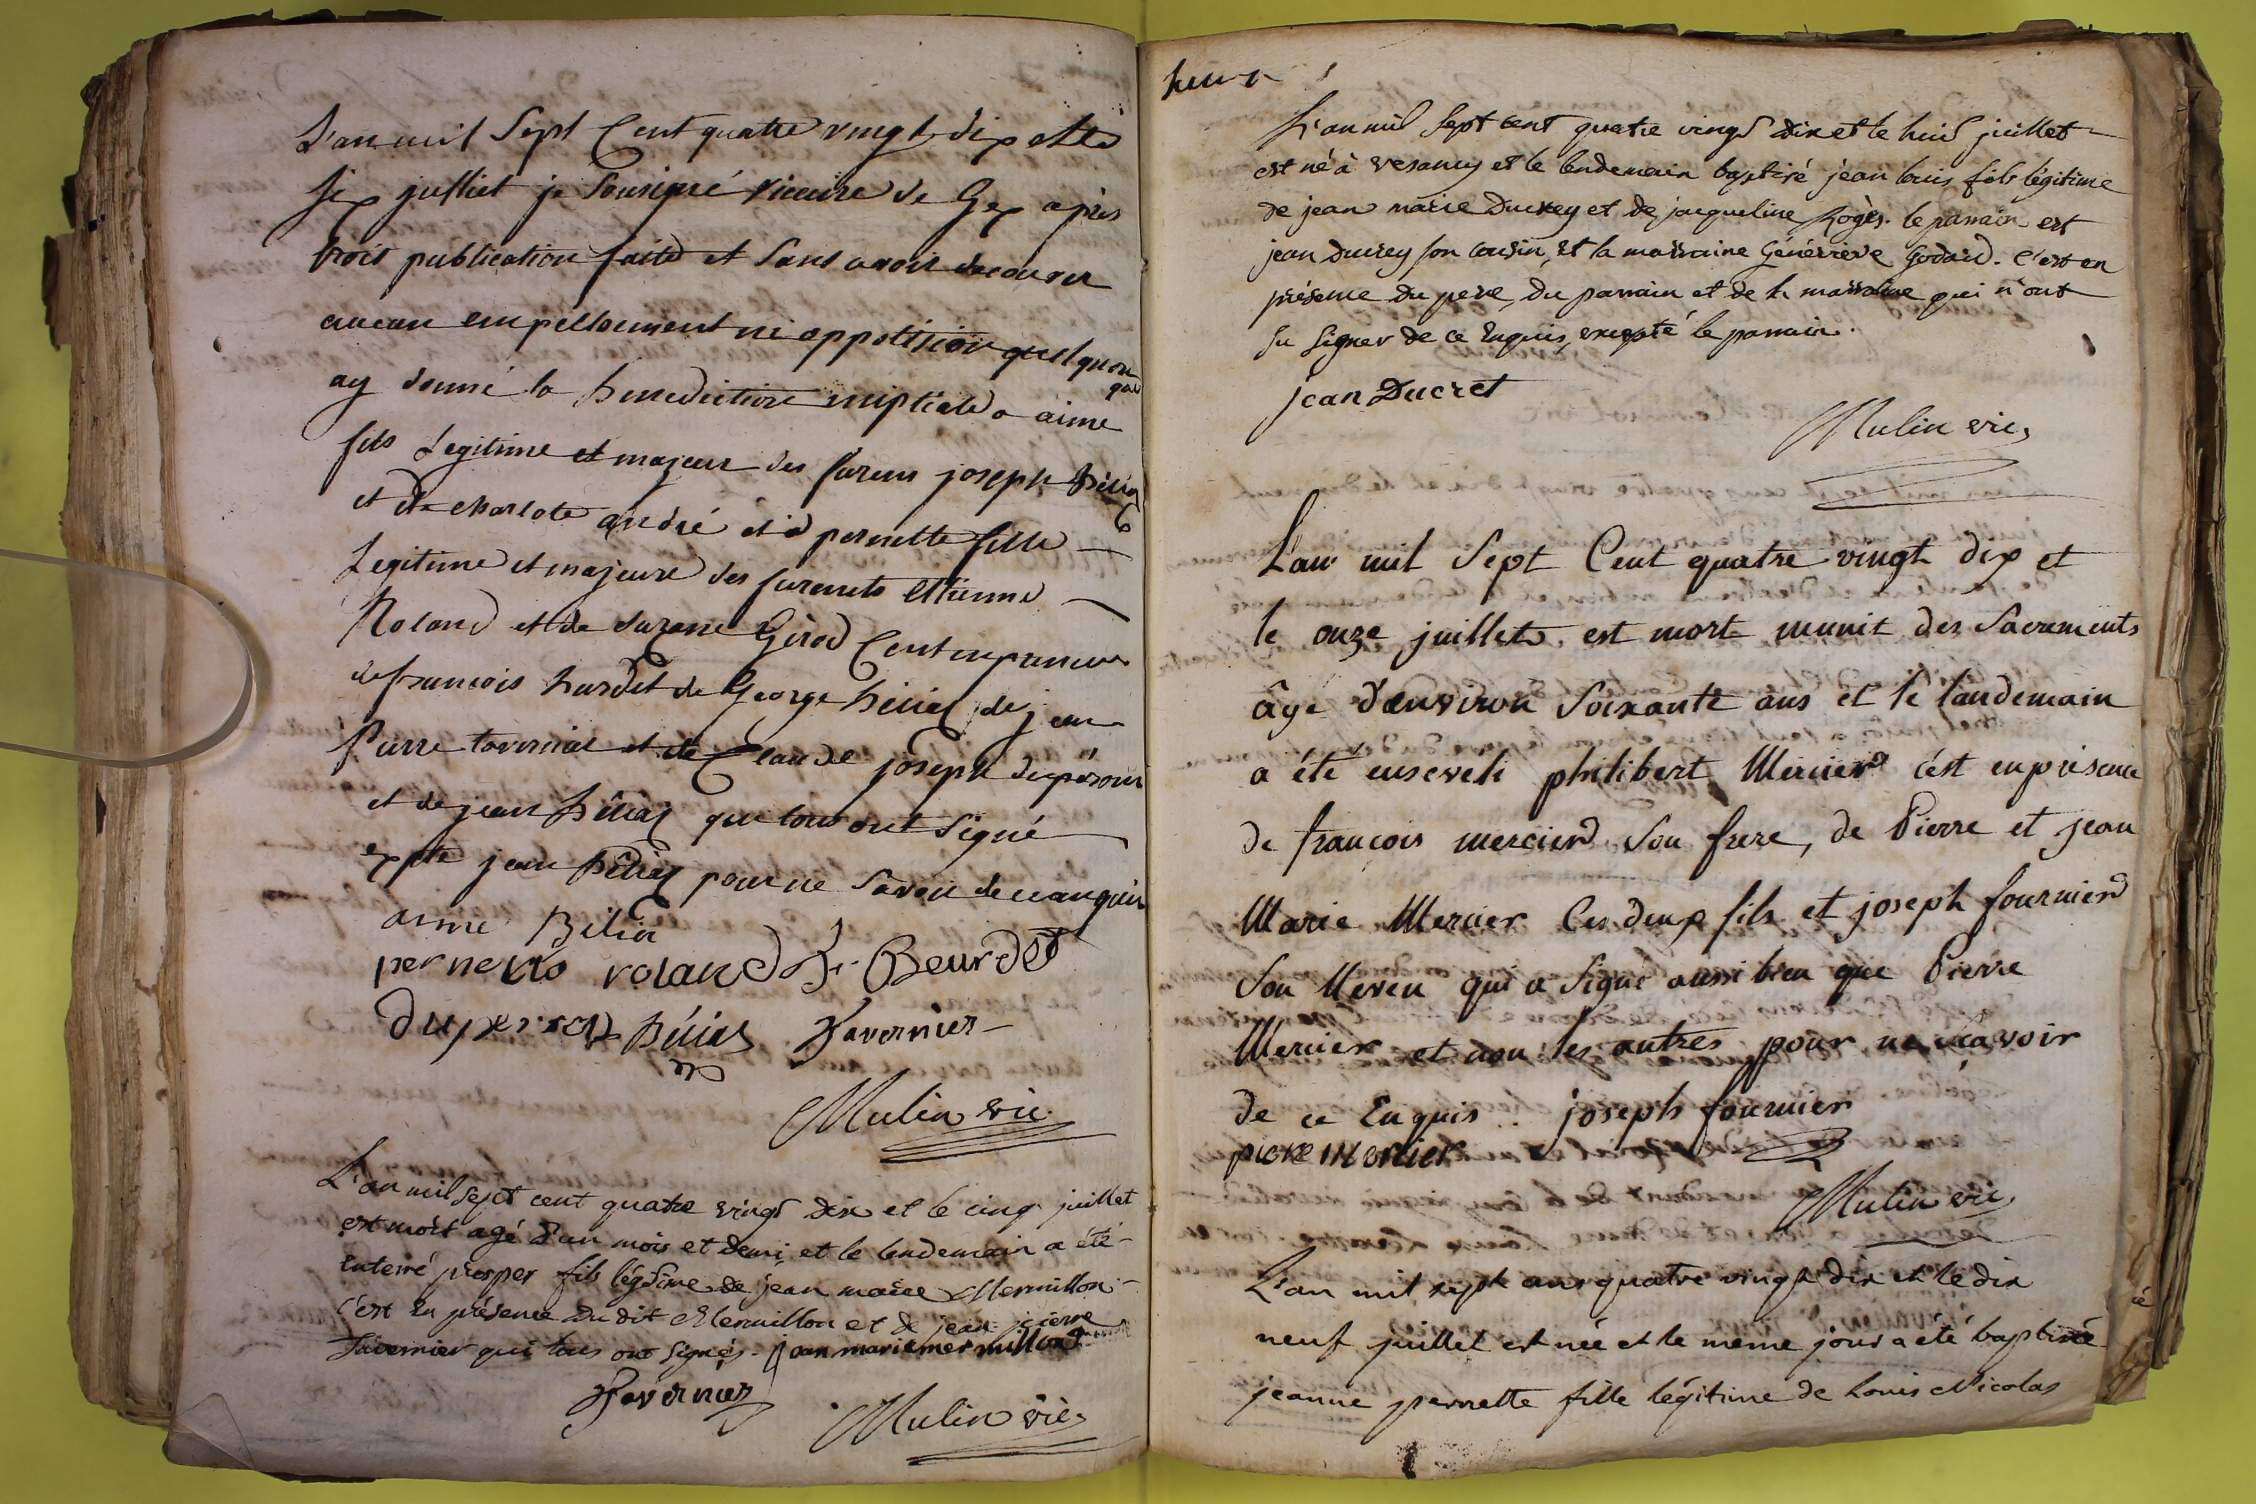 L'an mil Sept Cent quatre vingt dix et le
six julliet je Sousigné vicaire de Gex apres
trois publication faite et sans avoir decouvru
aucun empechement ni oppolition quelquon
que
ay donné la benediction nuptiale a aime
fils Legitime et majeur des furens joseph
et de charlote andré et a pernette fille
Legitime et majeure des furents ettienne
Roland et de Suzane Girod C'est en presence
de francois burdet de George béliaz de jean
Pierre tavernier et de Claude joseph duperrou
et de jean béliaz que tous ont signé
expte jean béliaz pour ne Savoir de ce enquis
aime Bilia
pernette roland F. Beurdet
duperrou béliaz Tavernier
Mulin vic.
L'an mil sept cent quatre vingt dix et le cinq juillet
est mort agé d'un mois et demi, et le lendemain a été
enterré prosper fils légitime de jean marie Mermillon
C'est en présence du dit Mermillon et de jean pierre
Tavernier qui tous ont signés. jean marie mermillond
Tavernier
Mulin vic.
L'an mil Sept cent quatre vingt dix et le huit juillet
est né à vesancy et le lendemain baptisé jèan louis fils légitime
de jean marie Ducrey et de jacqueline Rogès. le parrain est
jean Ducrey son cousin, et la marraine Généviève Godard. C'est en
présence du pere, du parrain et de la marraine qui n'ont
su signer de ce Enquis, excepté le parrain.
jean Ducret
Mulin vic.
L'an mil Sept Cent quatre vingt dix et
le onze juillet est mort munit des Sacrements
âgé d'anviron Soixante ans et le landemain
a été enseveli philibert Mercier c'est en présence
de françois mercier Son frere, de Pierre et jean
Marie Mercier Ces deux fils et joseph fournier
Son Neveu qui a Signé aussi bien que Pierre
Mercier et non les autres pour ne sçavoir
de ce Enquis. joseph fournier
piere mercier
Mulin vic.
L'an mil sept ans quatre vingt dix et le dix
neuf juillet est née et le meme jour a été baptisée
jeanne pernette fille légitime de Louis Nicolas